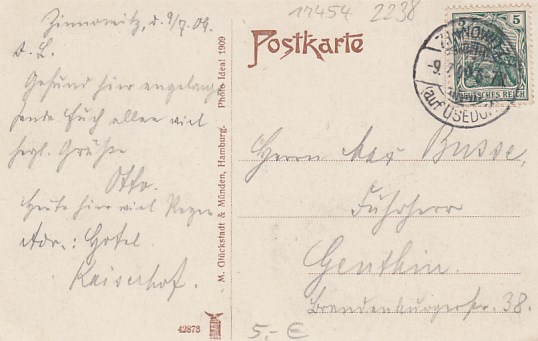 Zinnowitz, d. 9/7. 09.
d. L.
Gesund hier angelangt
sende Euch allen viel
herzl. Grüße
Otto.
Heute hier viel Regen
Adr.: Hotel
Kaiserhof.
M. Glückstadt & Münden, Hamburg. Photo Ideal 1909
42873
17454 2238
Postkarte
5
DEUTSCHES REICH
ZINNOWITZ
-9.7.
(auf USEDOM)
Herrn Max Busse,
Fuhrherr
Genthin.
Brandenburgerstr. 38.
5,- €